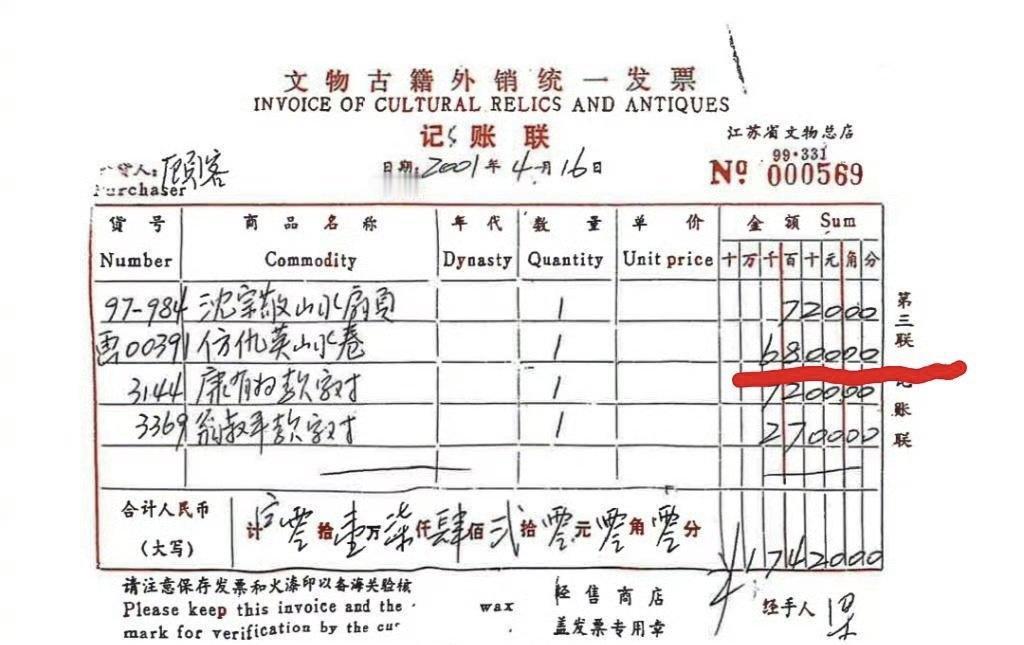 文物古籍外销统一发票
INVOICE OF CULTURAL RELICS AND ANTIQUES
记账联
江苏省文物总店
货人: 顾客
Purchaser
日期: 2001年4月16日
99·331
Nº 000569
货号 商品名称 年代 数量 单价 金额 Sum
Number Commodity Dynasty Quantity Unit price 十万千百十元角分
97-984 沈宗敬山水扇页 1 72000
00391 仿仇英山水卷 1 680000
3144 康有为款字对 1 720000
3369 翁叔平款字对 1 270000
第三联 记账联
合计人民币
(大写)
计 零拾壹万柒仟肆佰弍拾零元零角零分 ¥1742000
请注意保存发票和火漆印以备海关验核
Please keep this invoice and the wax
mark for verification by the cu
经售商店
盖发票专用章
经手人